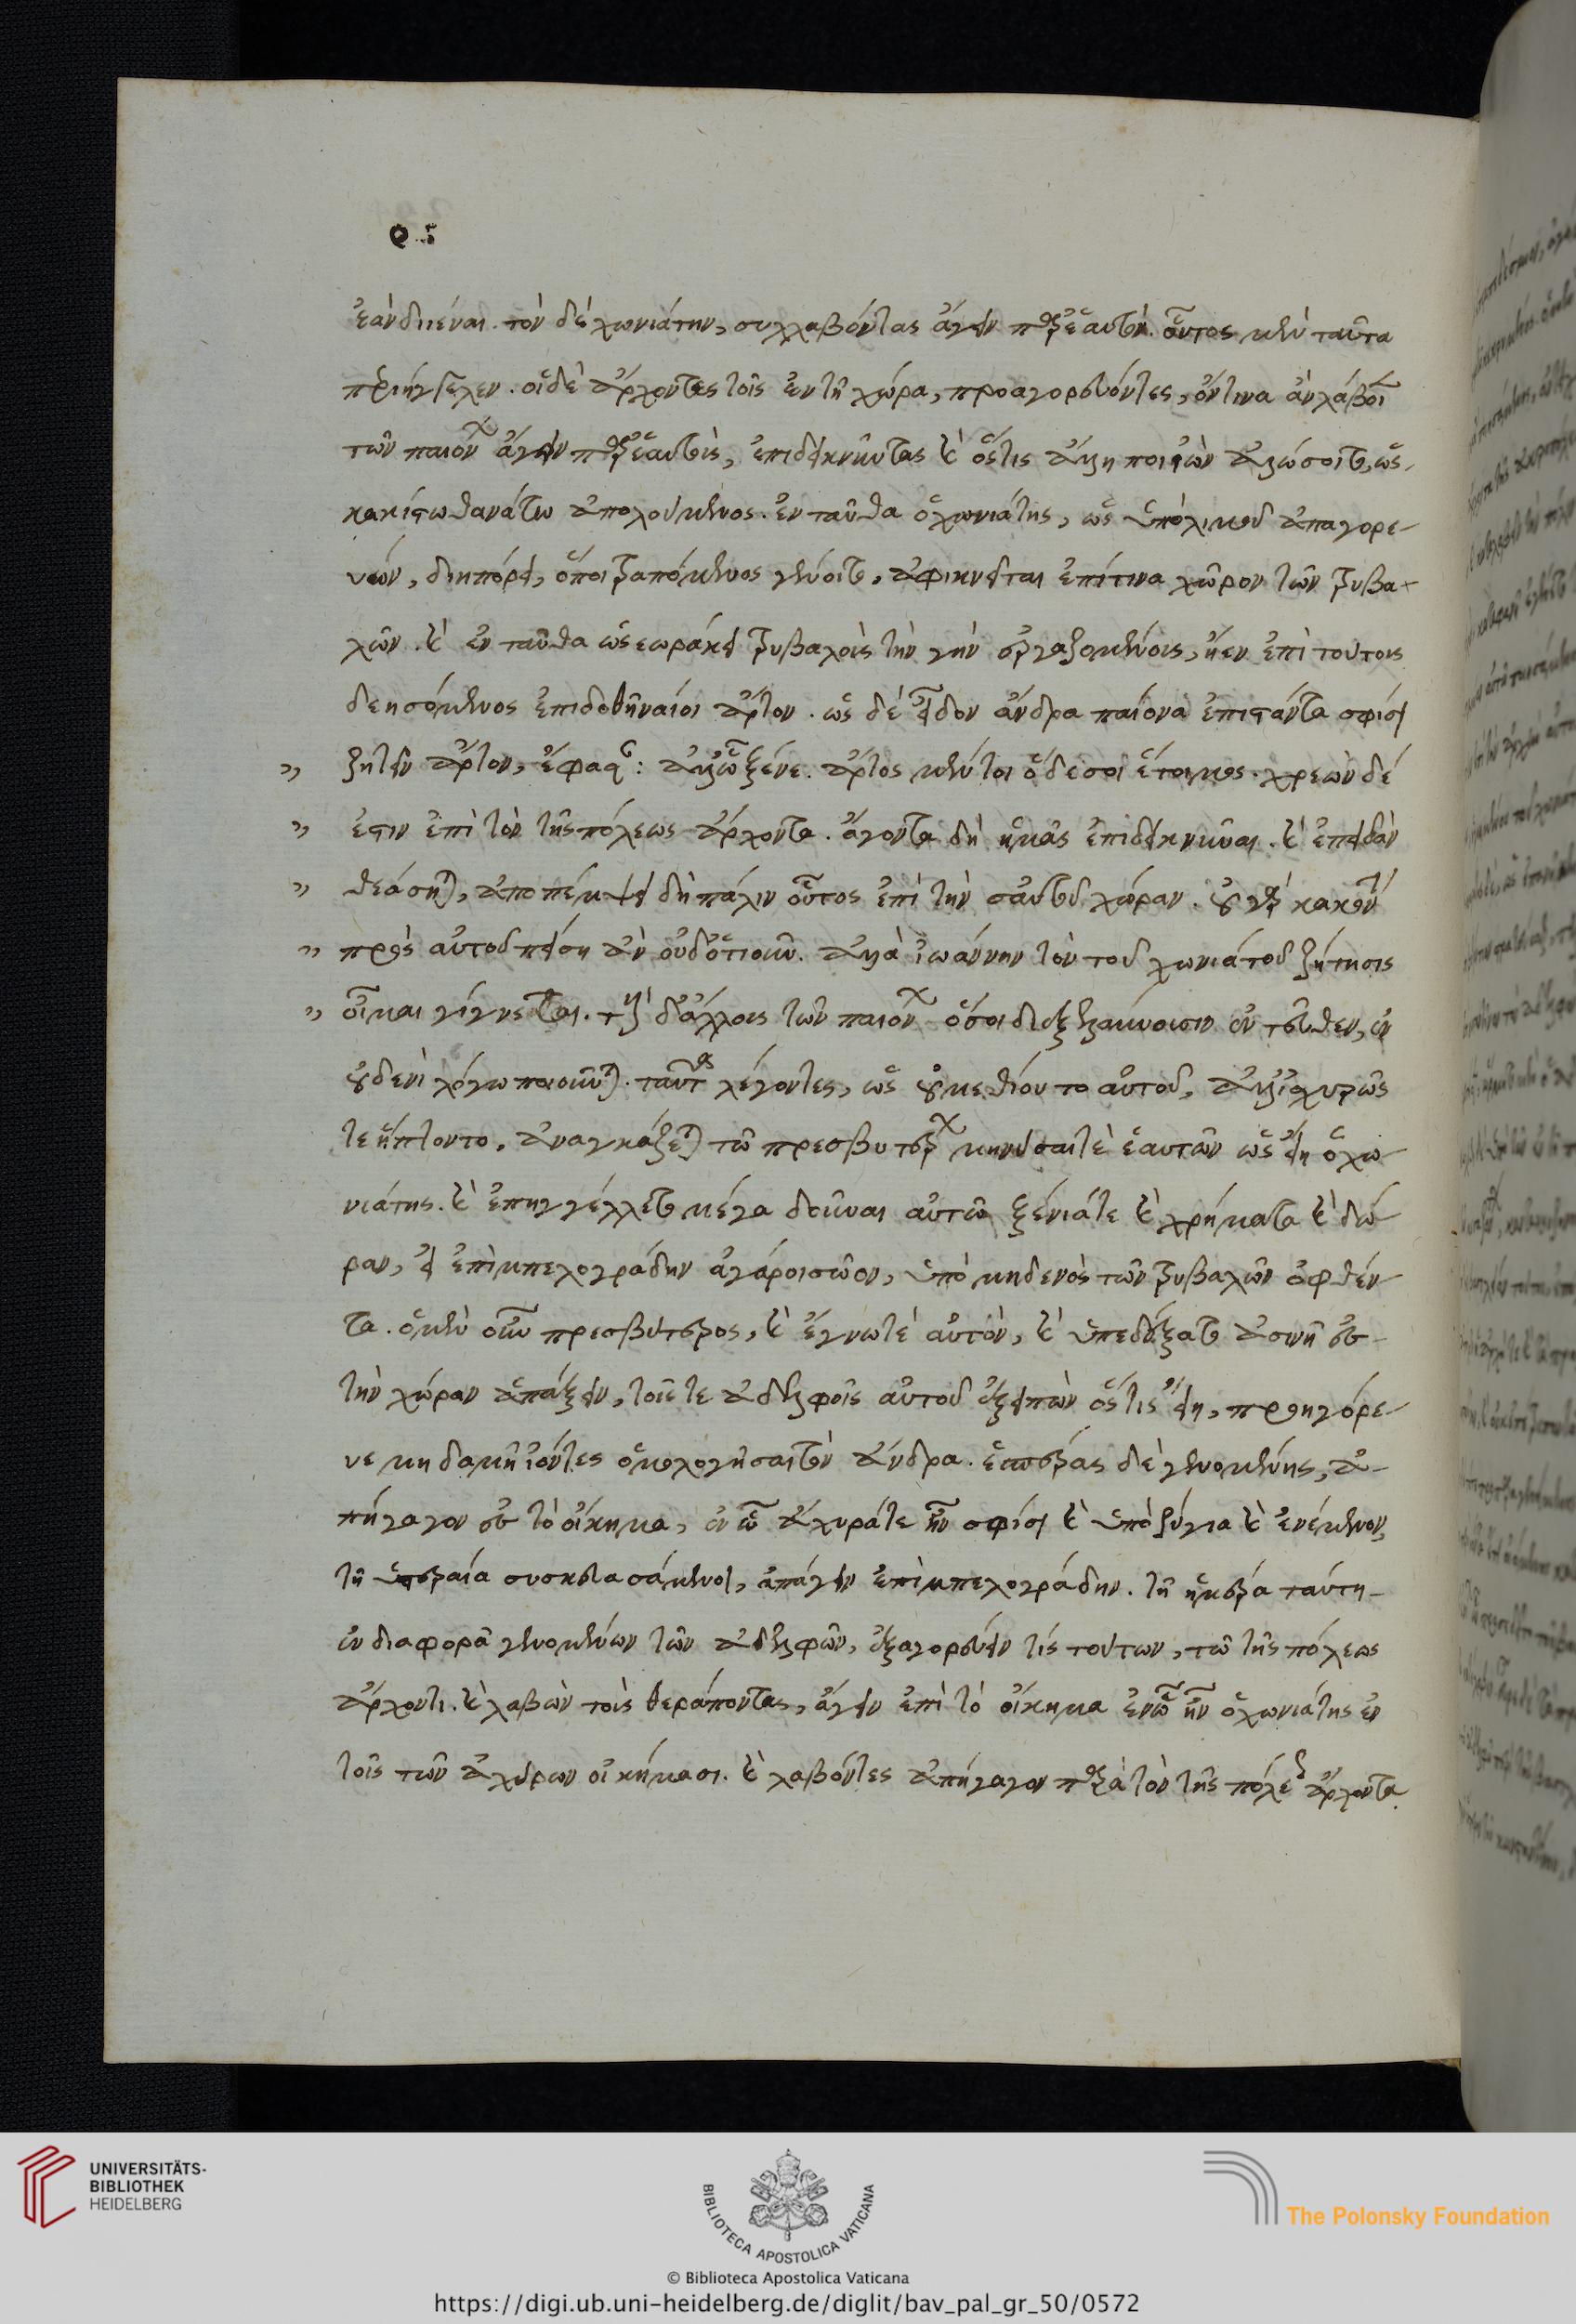 ἐᾶν διϊέναι. τὸν δὲ χωνιάτην, συλλαβόντας ἄγειν παρ' ἑαυτόν. οὗτος μὲν ταῦτα
περιήγγελλεν. οἱ δὲ ἄρχοντες τοῖς ἐν τῇ χώρα, προαγορεύοντες, ὅντινα ἂν λάβοι
τῶν παιόνων ἄγειν παρ' ἑαυτοὺς, ἐπιδεικνῦντας καὶ ὅστις ἄλλη ποιῶν ἁλώσοιτο, ὡς
κακίστω θανάτω ἀπολούμενος. ἐνταῦθα ὁ χωνιάτης, ὡς ὑπὸ λιμοῦ ἀπαγορε-
ύων, διηπόρει, ὅποι τραπόμενος γένοιτο, ἀφικνεῖται ἐπί τινα χῶρον τῶν τριβα-
λῶν. καὶ ἐνταῦθα ὡς ἑωράκει τριβαλοὺς τὴν γῆν ἐργαζομένους, ᾔει ἐπὶ τούτους
δεησόμενος ἐπιδοθῆναί οἱ ἄρτον. ὡς δὲ εἶδον ἄνδρα παίονα ἐπιστάντα σφίσι
" ζητεῖν ἄρτον, ἔφασαν: ἀλλ' ὦ ξένε. ἄρτος μέν τοι ὅδε σοι ἕτοιμος. χρεὼν δέ
" ἐστιν ἐπὶ τὸν τῆς πόλεως ἄρχοντα. ἄγοντα δὴ ἡμᾶς ἐπιδεικνῦναι. καὶ ἐπειδὰν
" θεάσηται, ἀποπέμψει δὴ πάλιν οὗτος ἐπὶ τὴν σαυτοῦ χώραν. οὐ γὰρ κακὸν
" πρὸς αὐτοῦ πείση ἂν οὐδ' ὁτιοῦν. ἀλλὰ ἰωάννην τὸν τοῦ χωνιάτου ζήτησις
" οἶμαι γίγνεται. τοῖς δ' ἄλλοις τῶν παιόνων ὅσοι διεξελαύνουσιν ἐντεῦθεν, ἐν
οὐδενὶ λόγω ποιοῦνται. ταῦτα λέγοντες, ὡς οὐ μεθίοντο αὐτοῦ, ἀλλ' ἰσχυρῶς
τε ἥπτοντο, ἀναγκάζεται τῶ πρεσβυτέρω μηνῦσαί τὲ ἑαυτῶν ὡς εἴη ὁ χω-
νιάτης. καὶ ἐπηγγέλλετο μέγα δοῦναι αὐτῶ ξένιά τε καὶ χρήματα καὶ δώ-
ραν, εἰ ἐπὶ μπελογράδην ἀγάγοι σῶον, ὑπὸ μηδενὸς τῶν τριβαλῶν ὀφθέν-
τα. ὁ μὲν οὖν πρεσβύτερος, καὶ ἔγνω τὲ αὐτὸν, καὶ ὑπεδέξατο ἀσινῆ ἐς
τὴν χώραν ἀπάξειν, τοῖς τε ἀδελφοῖς αὐτοῦ ἐξειπὼν ὅστις εἴη, προηγόρε-
υε μηδαμῇ ἰόντες ὁμολογῆσαι τὸν ἄνδρα. ἑσπέρας δὲ γενομένης, ἀ-
πήγαγον ἐς τὸ οἴκημα, ἐν ὧ ἄχυρά τε ἦν σφίσι καὶ ὑποζύγια καὶ ἐνέμενον,
τῇ ὑστεραία συσκευασάμενοι, ἀπάγειν ἐπὶ μπελογράδην. τῇ ἡμέρα ταύτη
ἐν διαφορᾶ γενομένων τῶν ἀδελφῶν, ἐξαγορεύειν τὶς τούτων, τῶ τῆς πόλεως
ἄρχοντι. καὶ λαβὼν τοὺς θεράποντας, ἄγειν ἐπὶ τὸ οἴκημα ἐν ὧ ἦν ὁ χωνιάτης ἐν
τοῖς τῶν ἀχύρων οἰκήμασι. καὶ λαβόντες ἀπήγαγον παρὰ τὸν τῆς πόλεως ἄρχοντα
UNIVERSITÄTS-
BIBLIOTHEK
HEIDELBERG
BIBLIOTECA APOSTOLICA VATICANA
The Polonsky Foundation
© Biblioteca Apostolica Vaticana
https://digi.ub.uni-heidelberg.de/diglit/bav_pal_gr_50/0572